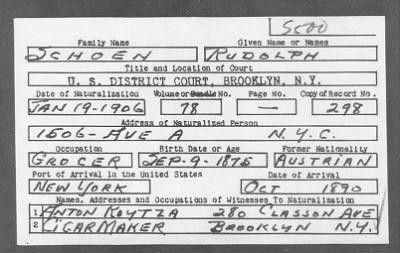 S500
Family Name Given Name or Names
SCHOEN RUDOLPH
Title and Location of Court
U. S. DISTRICT COURT, BROOKLYN, N.Y.
Date of Naturalization Volume or Bundle No. Page No. Copy of Record No.
JAN 19-1906 78 — 298
Address of Naturalized Person
1506-AVE A N.Y.C.
Occupation Birth Date or Age Former Nationality
GROCER SEP-9-1875 AUSTRIAN
Port of Arrival in the United States Date of Arrival
NEW YORK OCT 1890
Names, Addresses and Occupations of Witnesses To Naturalization
1 ANTON KOYTZA 280 CLASSON AVE
2 CIGARMAKER BROOKLYN N.Y.